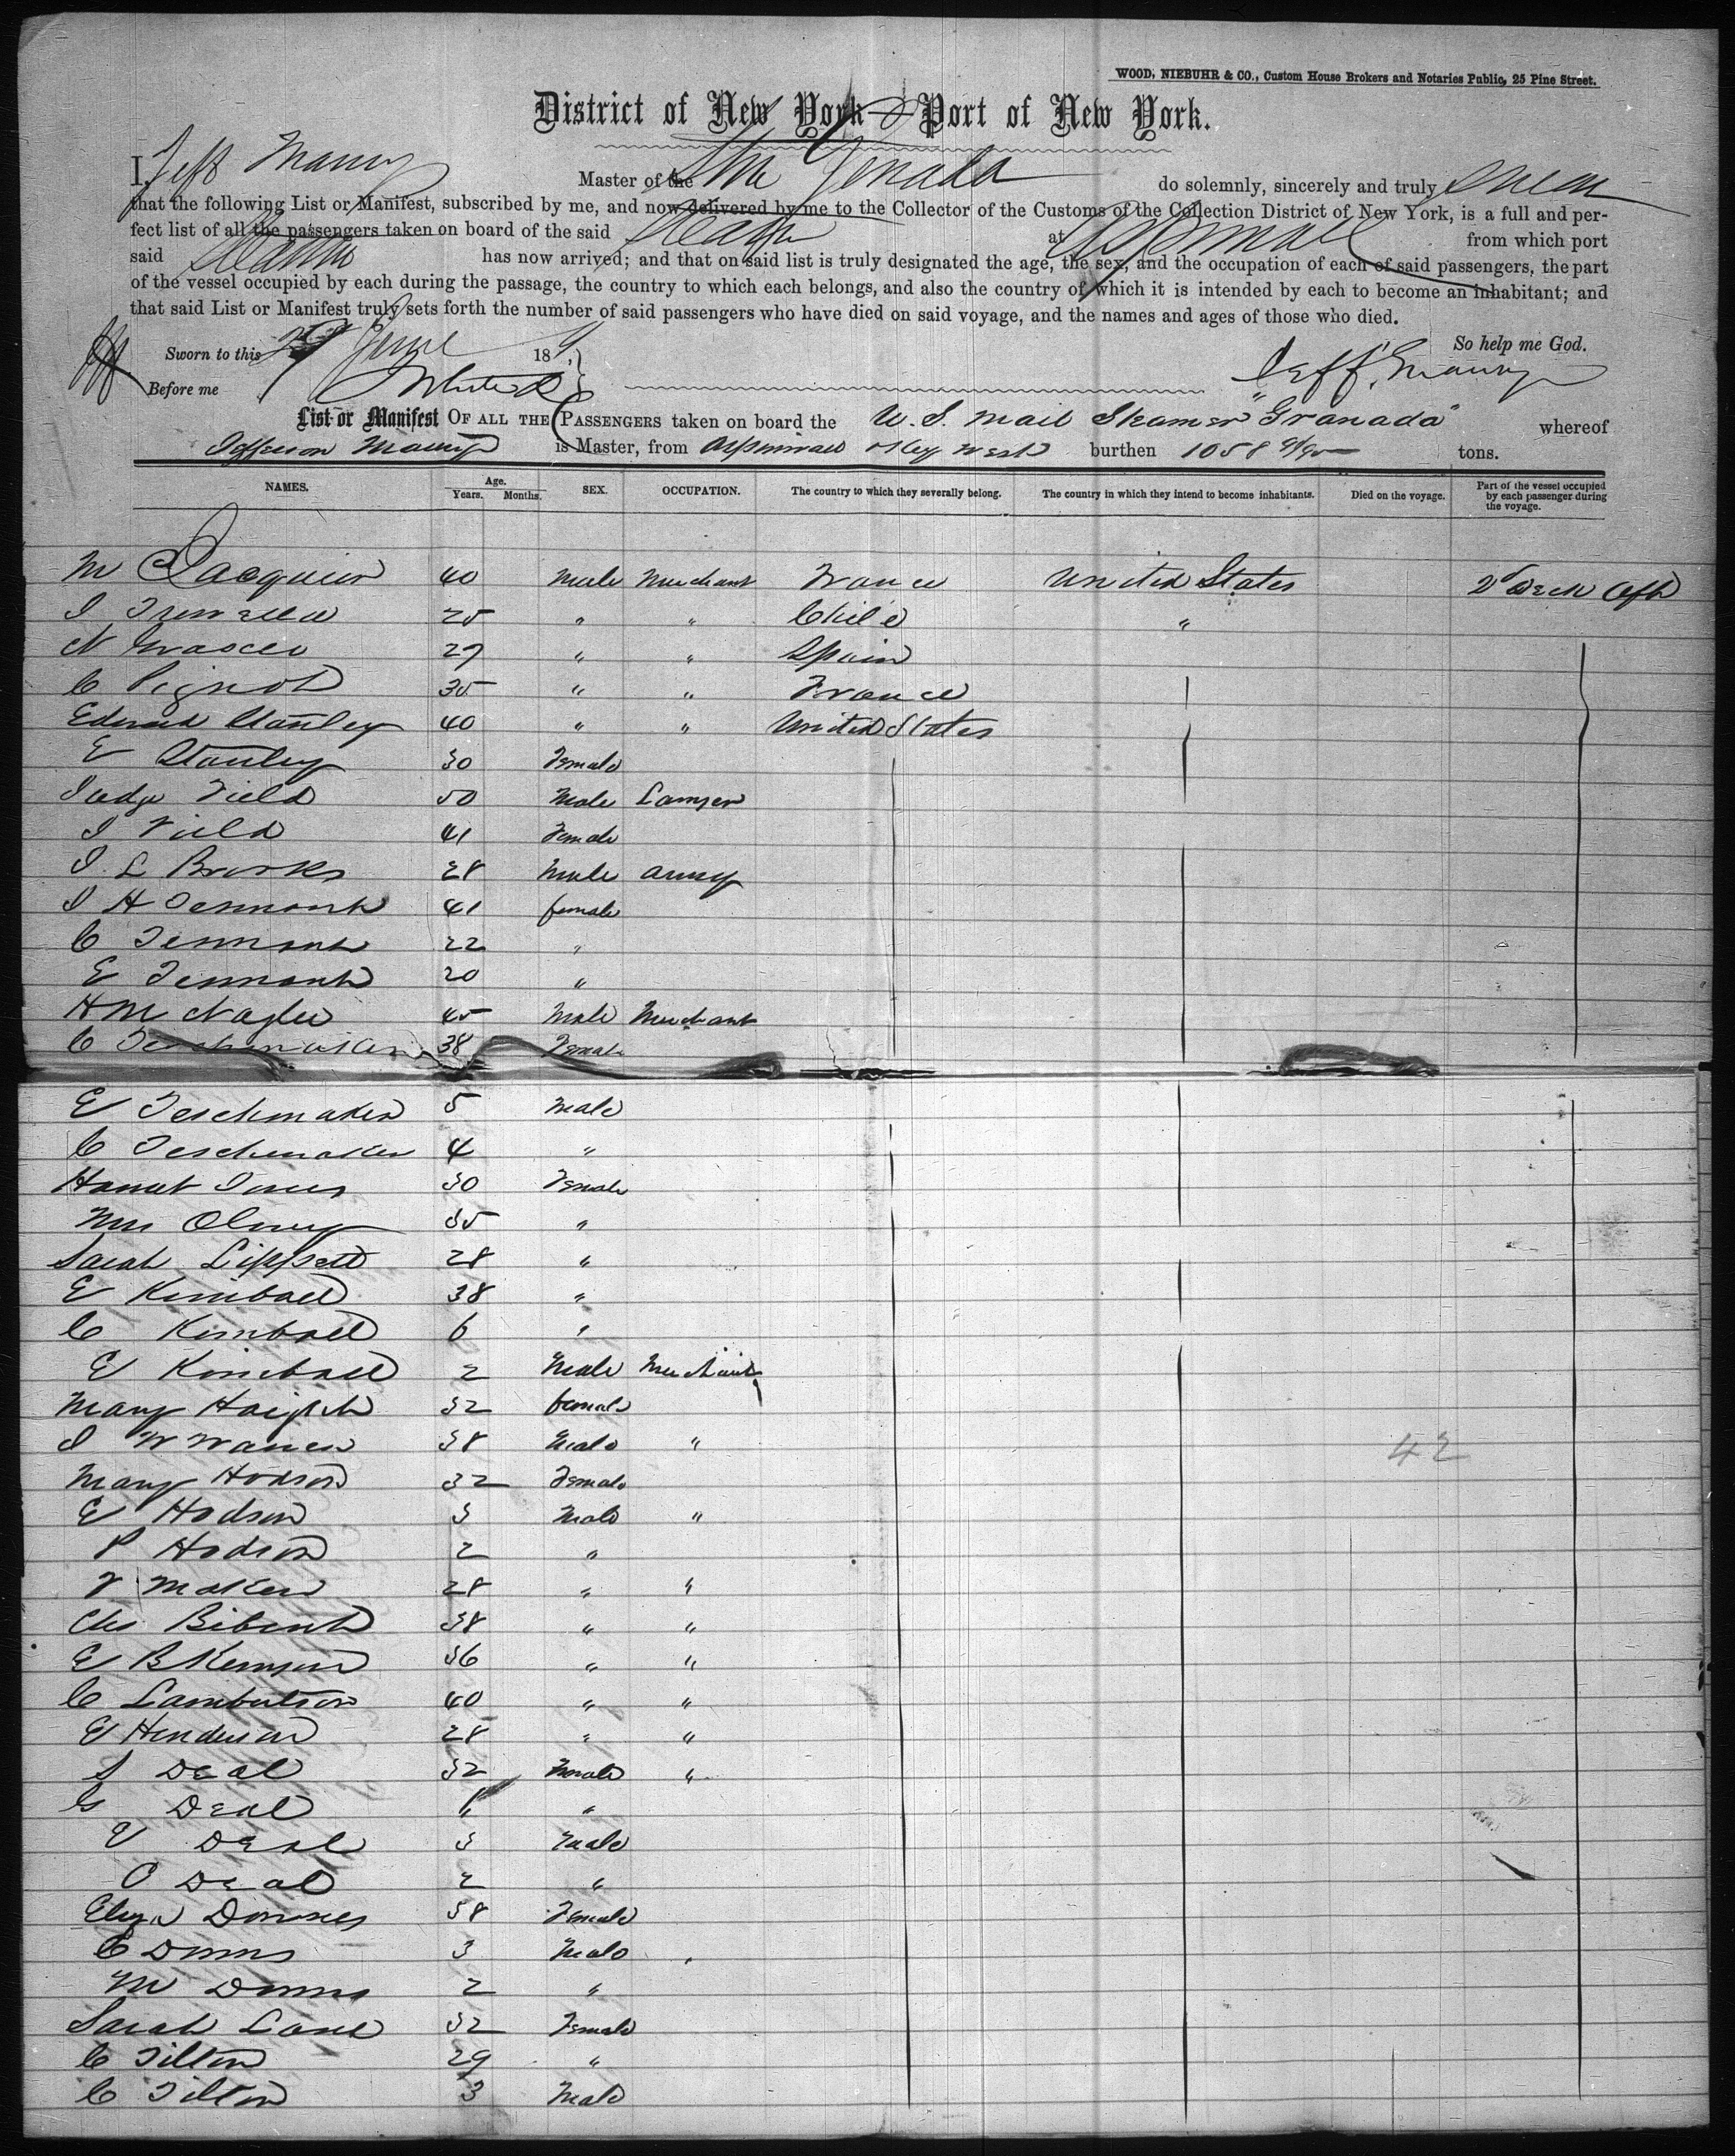 WOOD, NIEBUHR & CO., Custom House Brokers and Notaries Public, 25 Pine Street.
District of New York—Port of New York.
I, Jeff Maury Master of the Str Grenada do solemnly, sincerely and truly swear
that the following List or Manifest, subscribed by me, and now delivered by me to the Collector of the Customs of the Collection District of New York, is a full and per-
fect list of all the passengers taken on board of the said Steamer at Aspinwall from which port
said Steamer has now arrived; and that on said list is truly designated the age, the sex, and the occupation of each of said passengers, the part
of the vessel occupied by each during the passage, the country to which each belongs, and also the country of which it is intended by each to become an inhabitant; and
that said List or Manifest truly sets forth the number of said passengers who have died on said voyage, and the names and ages of those who died.
Sworn to this 29 June 18 So help me God.
Before me Jeff. Maury
List or Manifest OF ALL THE PASSENGERS taken on board the U. S. Mail Steamer "Granada" whereof
Jefferson Maury is Master, from Aspinwall & Key West burthen 1058 tons.
NAMES. Age. Years. Months. SEX. OCCUPATION. The country to which they severally belong. The country in which they intend to become inhabitants. Died on the voyage. Part of the vessel occupied by each passenger during the voyage.
M Jacquier 40 Male Merchant France United States 2d Deck Aft
J 25 " " Chile "
N 29 " " Spain
C Pignot 35 " " France
Edward Stanley 40 " " United States
E Stanley 30 Female
Judge Field 50 Male Lawyer
J Field 41 Female
J. L Brooks 28 Male Army
J H Tennant 41 female
C Tennant 22 "
E Tennant 20 "
H M Naglee 45 Male Merchant
C Teschmaker 38 Female
E Teschmaker 5 Male
C Teschmaker 4 "
30 Female
Mrs Olney 35 "
Sarah Lippett 28 "
E Kimball 38 "
C Kimball 6 "
E Kimball 2 Male Merchant
Mary Haight 32 female
J W Warren 38 Male "
42
Mary Hodson 32 Female
E Hodson 3 Male "
P Hodson 2 "
28 " "
Chs 38 " "
E B Kenyon 36 " "
C Lambertson 40 " "
E Henderson 28 " "
S Deal 32 Female "
G Deal " "
E Deal 3 Male
C Deal 2 "
Eliza Downes 38 Female
C Downs 3 Male
M Downs 2 "
Sarah Lane 32 Female
C Tilton 29 "
C Tilton 3 Male